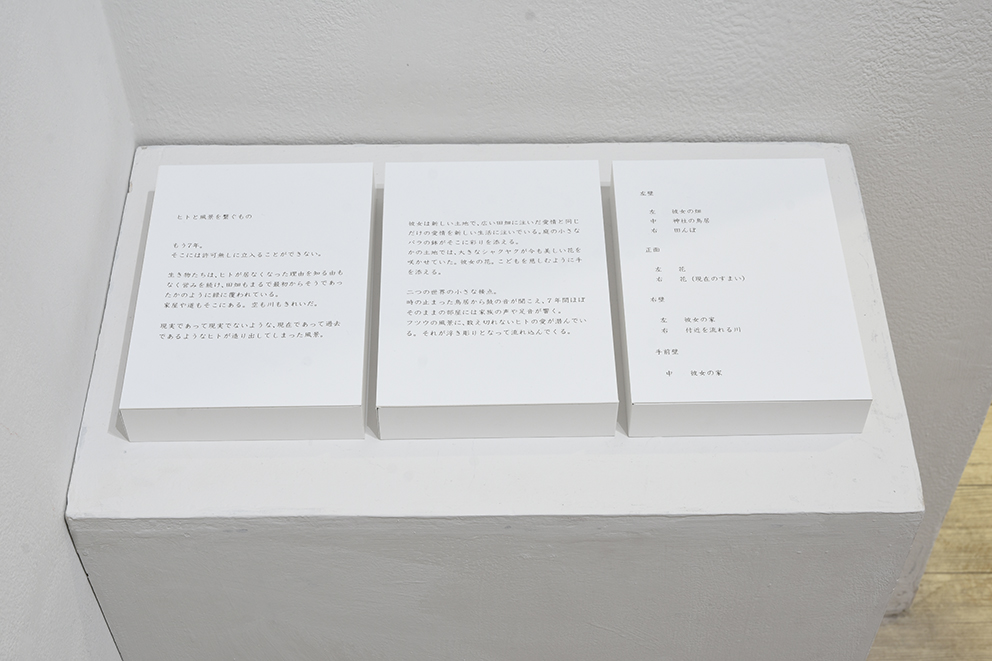 ヒトと風景を繋ぐもの
もう7年。
そこには許可無しに立入ることができない。
生き物たちは、ヒトが居なくなった理由を知る由も
なく営みを続け、田畑もまるで最初からそうであっ
たかのように緑に覆われている。
家屋や道もそこにある。空も川もきれいだ。
現実であって現実でないような、現在であって過去
であるようなヒトが造り出してしまった風景。
彼女は新しい土地で、広い田畑に注いだ愛情と同じ
だけの愛情を新しい生活に注いでいる。庭の小さな
バラの鉢がそこに彩りを添える。
かの土地では、大きなシャクヤクが今も美しい花を
咲かせていた。彼女の花。こどもを慈しむように手
を添える。
二つの世界の小さな接点。
時の止まった鳥居から鼓の音が聞こえ、7年間ほぼ
そのままの部屋には家族の声や足音が響く。
フツウの風景に、数え切れないヒトの愛が潜んでい
る。それが浮き彫りとなって流れ込んでくる。
左壁
左 彼女の畑
中 神社の鳥居
右 田んぼ
正面
左 花
右 花(現在のすまい)
右壁
左 彼女の家
右 付近を流れる川
手前壁
中 彼女の家